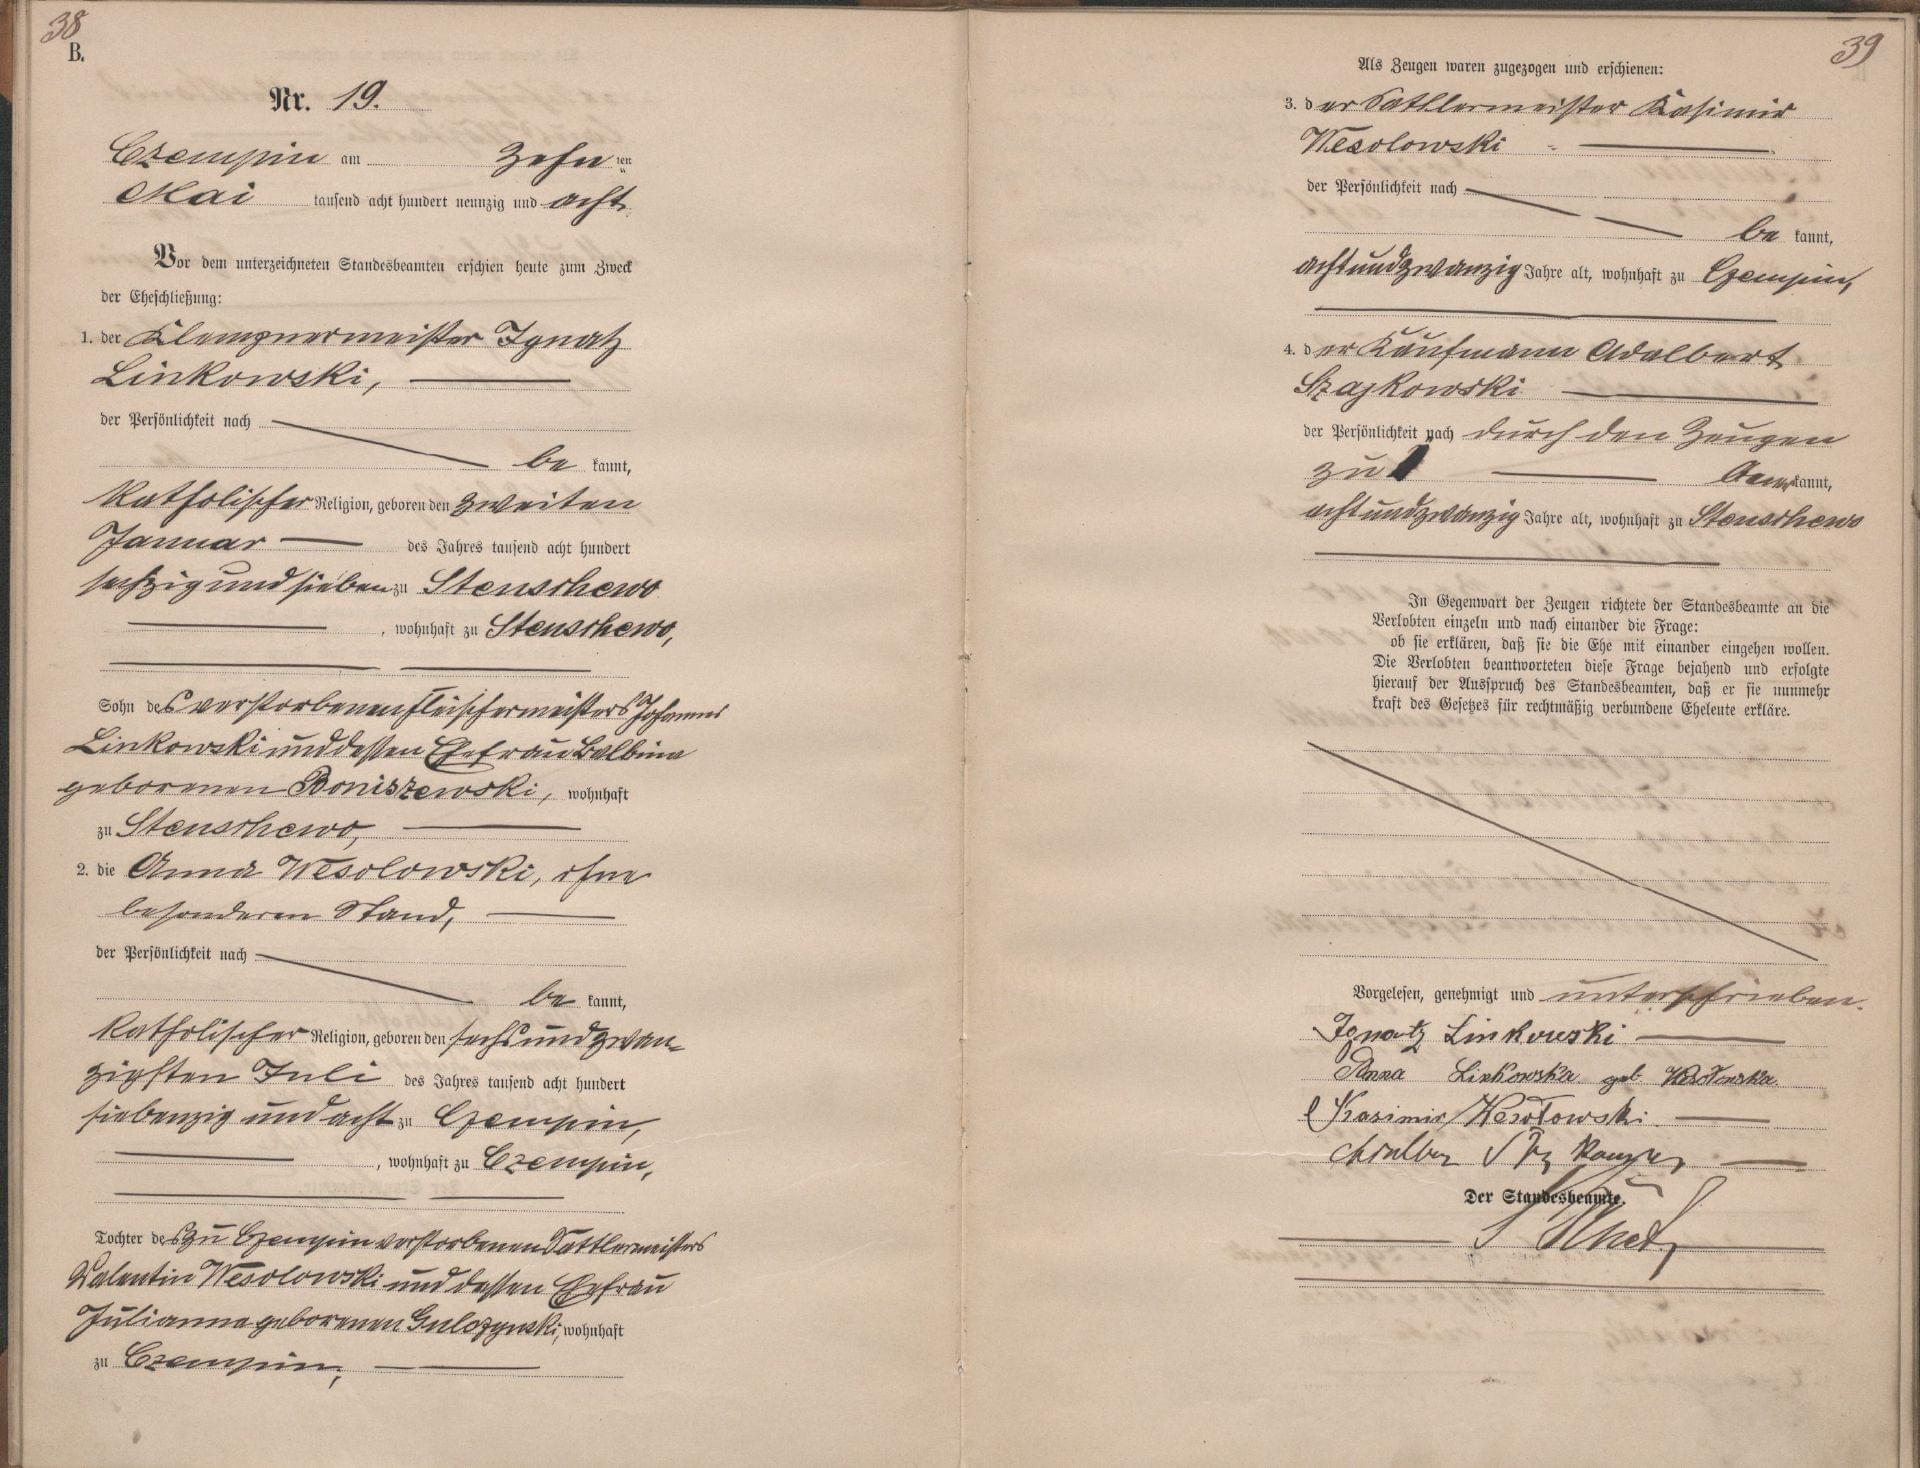 38
B.
Nr. 19.
Czempin am Zehn ten
Mai tausend acht hundert neunzig und acht
Vor dem unterzeichneten Standesbeamten erschien heute zum Zweck
der Eheschließung:
1. der Klempnermeister Ignatz
Linkowski,
der Persönlichkeit nach
be kannt,
katholischer Religion, geboren den zweiten
Januar des Jahres tausend acht hundert
sechzig und sieben zu Stenschewo
, wohnhaft zu Stenschewo,
Sohn des verstorbenen Fleischermeisters Johannes
Linkowski und dessen Ehefrau Balbina
geborenen Boniszewski, wohnhaft
zu Stenschewo,
2. die Anna Wesolowski, ohne
besonderen Stand,
der Persönlichkeit nach
be kannt,
katholischer Religion, geboren den sechsundzwan-
zigsten Juli des Jahres tausend acht hundert
siebenzig und acht zu Czempin,
, wohnhaft zu Czempin,
Tochter des zu Czempin verstorbenen Sattlermeisters
Valentin Wesolowski und dessen Ehefrau
Julianna geborenen, wohnhaft
zu Czempin,
39
Als Zeugen waren zugezogen und erschienen:
3. der Sattlermeister Kasimir
Wesolowski
der Persönlichkeit nach
be kannt,
achtundzwanzig Jahre alt, wohnhaft zu Czempin,
4. der Kaufmann Adalbert
Szajkowski
der Persönlichkeit nach durch den Zeugen
zu kannt,
achtundzwanzig Jahre alt, wohnhaft zu Stenschewo
In Gegenwart der Zeugen richtete der Standesbeamte an die
Verlobten einzeln und nach einander die Frage:
ob sie erklären, daß sie die Ehe mit einander eingehen wollen.
Die Verlobten beantworteten diese Frage bejahend und erfolgte
hierauf der Ausspruch des Standesbeamten, daß er sie nunmehr
kraft des Gesetzes für rechtmäßig verbundene Eheleute erkläre.
Vorgelesen, genehmigt und unterschrieben.
Ignatz Linkowski
Anna Linkowska geb. Wesołowska.
Kazimir Wesołowski
Der Standesbeamte.